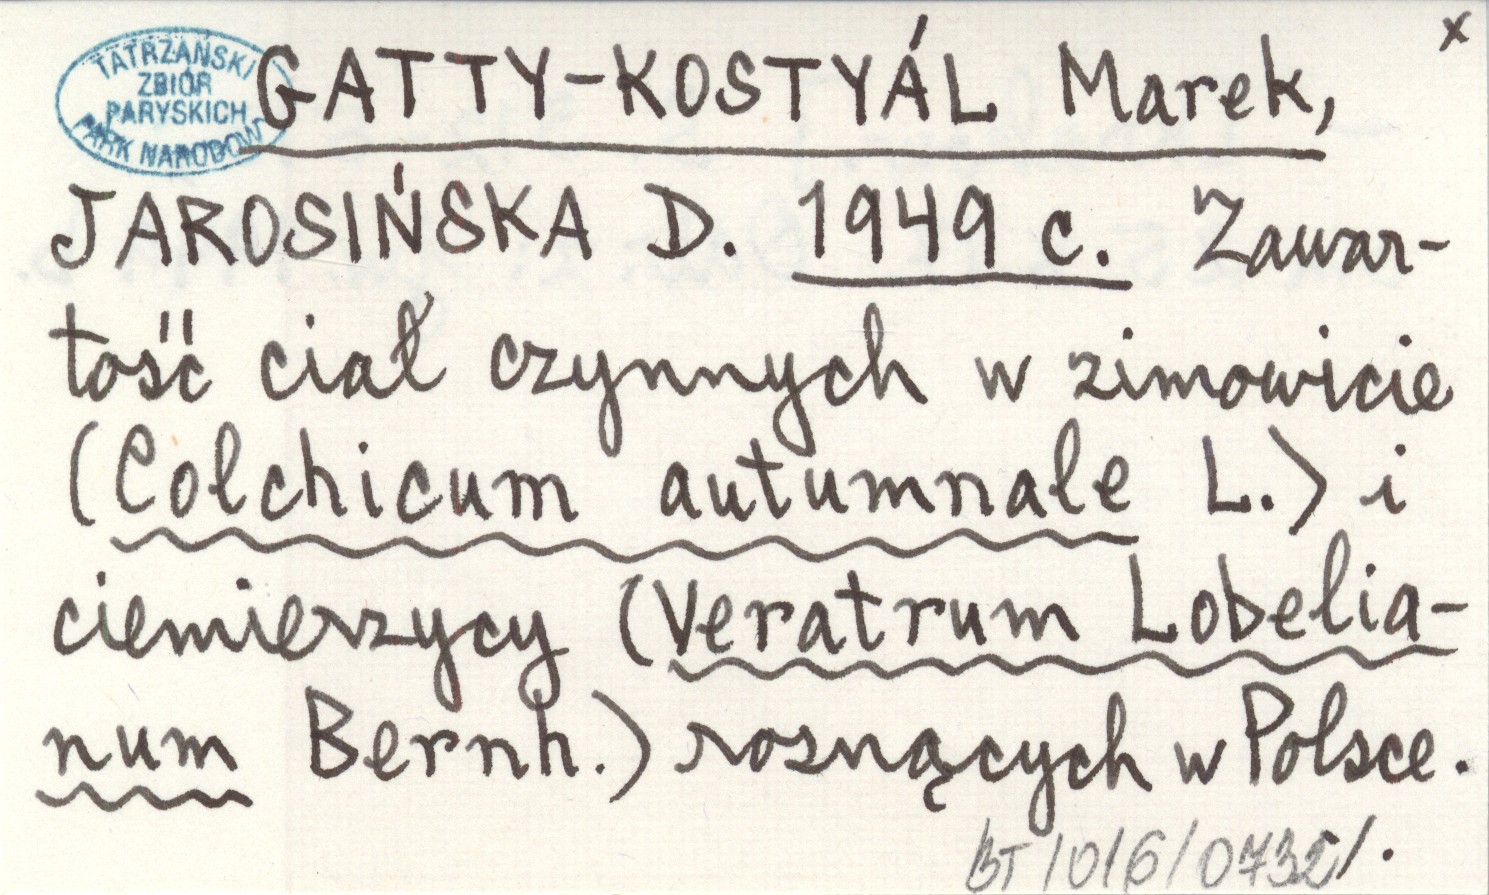 x
TATRZAŃSKI
ZBIÓR
PARYSKICH
PARK NARODOWY
GATTY-KOSTYÁL Marek,
JAROSIŃSKA D. 1949 c. Zawar-
tość ciał czynnych w zimowicie
(Colchicum autumnale L.) i
ciemierzycy (Veratrum Lobelia-
num Bernh.) rosnących w Polsce.
BT/016/0732/.